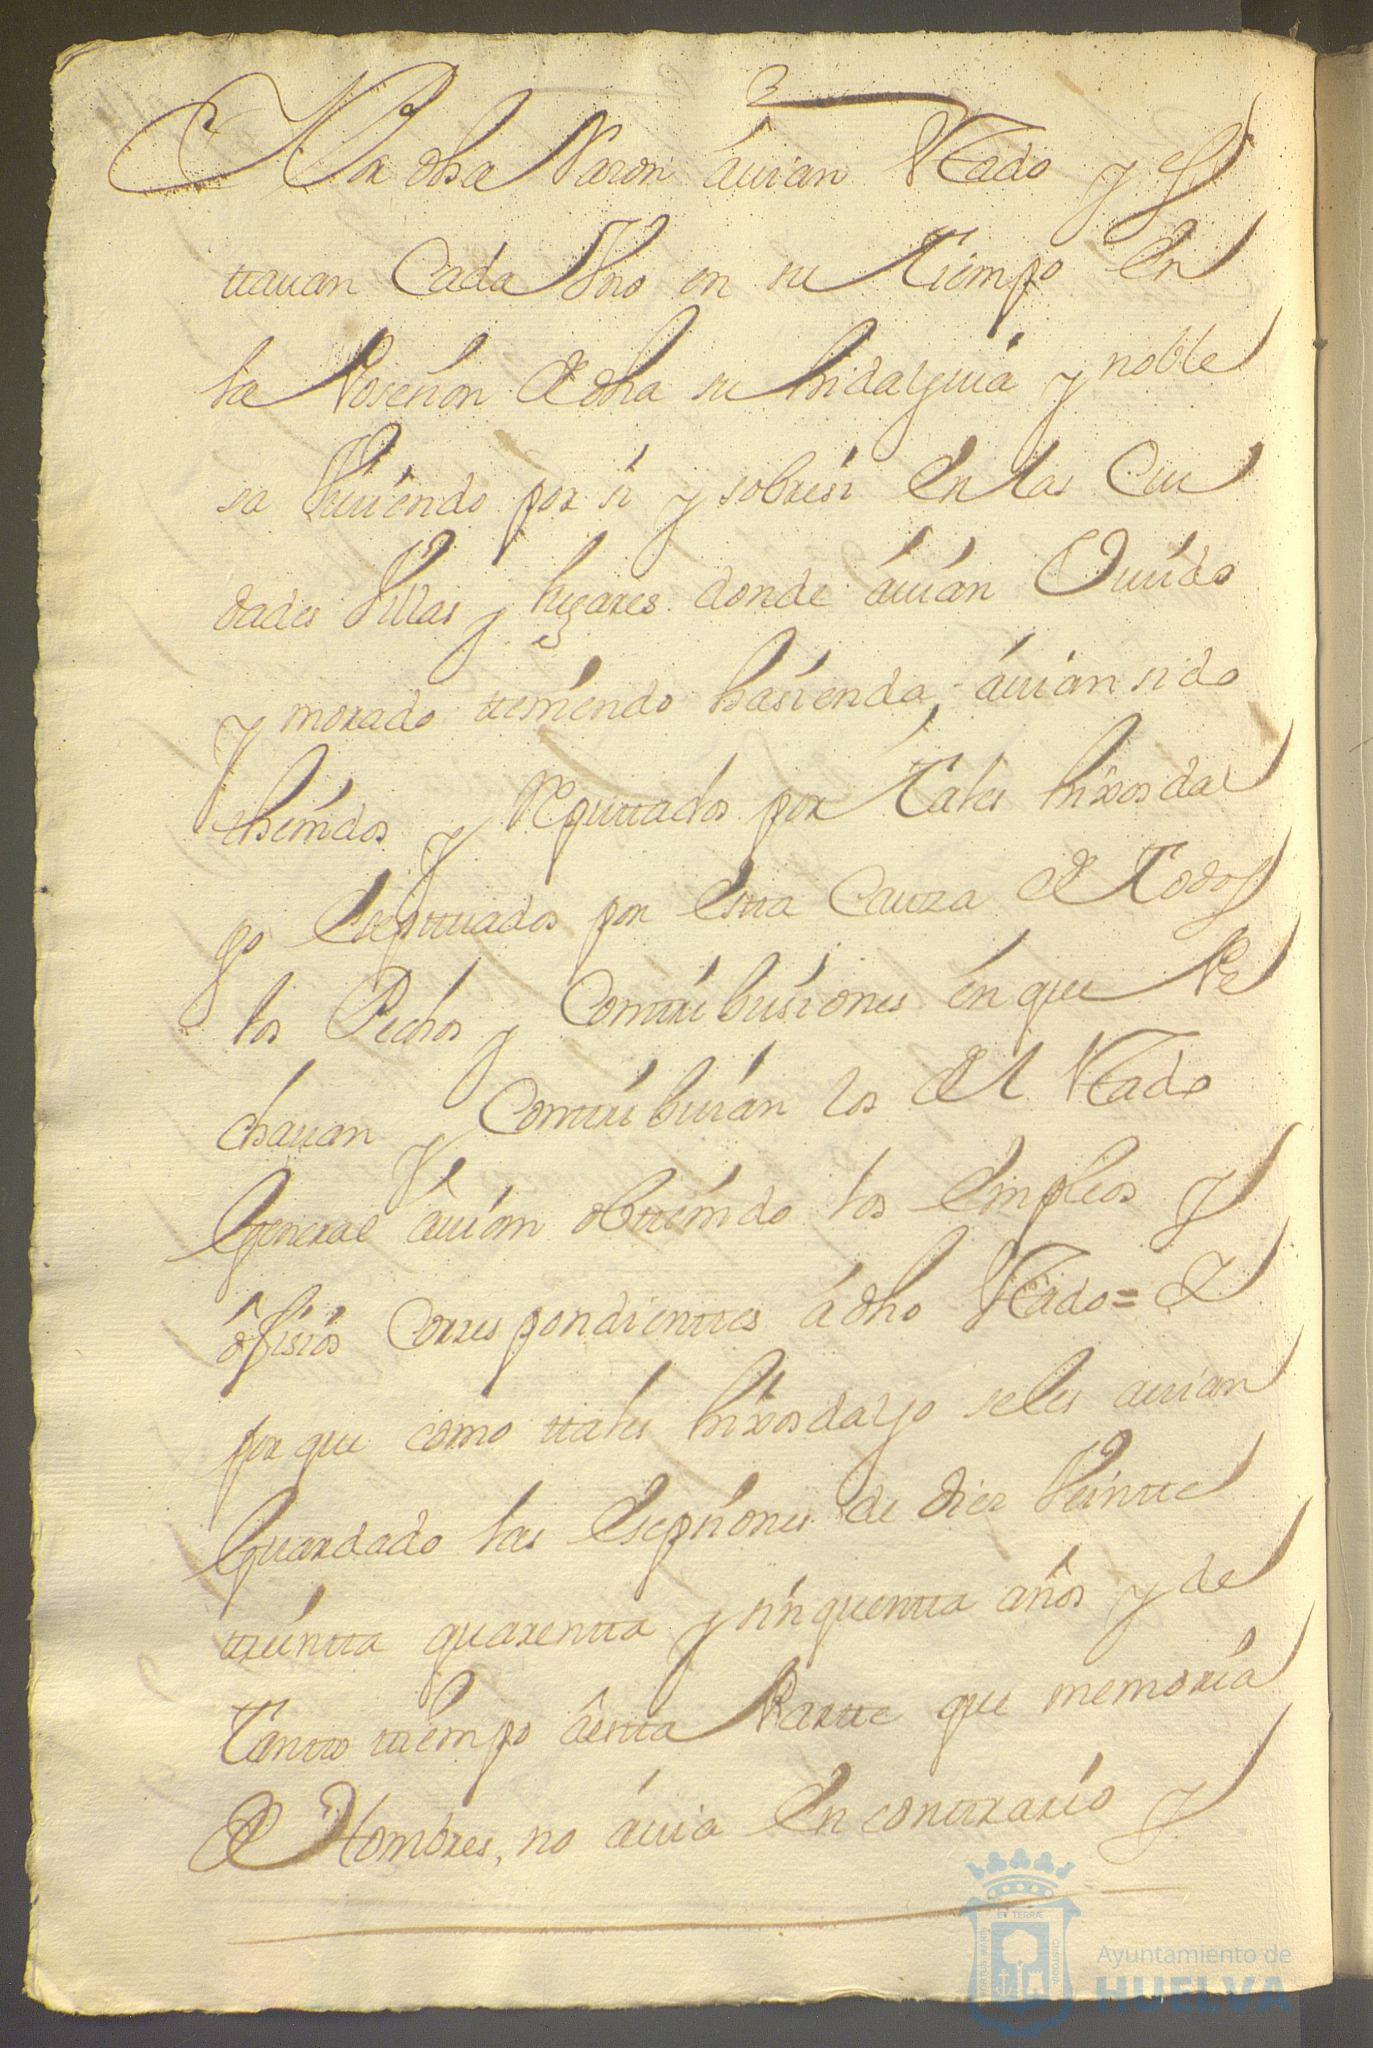 Por dha Varon avian Estado y es
ttavan Cada Uno en su Tiempo En
la Poseĉion de dha su hidalguia y noble
sa Viviendo por si y sobresi En las Ciu
dades Villas y lugares donde avian Vivido
y morado tteniendo hasienda, avian sido
thenidos y Reputtados por Tales hixosdal
go Exseptuados por Estta Cauza de Todos
los Pechos y Conttribusiones en que Pe
chavan y Conttribuian los del Estado
General avian obttenido los Empleos y
ofisios Correspondienttes a dho Estado = Y
por que como ttales hixosdalgo seles avian
Guardado las Esepsiones de diez Veintte
ttreintta quarentta y sinquentta años y de
Tantto ttiempo a estta Partte que memoria
de Hombres, no avia En conttrario y
Ayuntamiento de
HUELVA